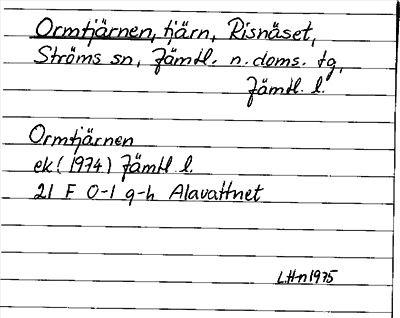 Ormtjärnen, tjärn, Risnäset,
Ströms sn, Jämtl. n. doms. tg,
Jämtl. l.
Ormtjärnen
ek. (1974) Jämtl l.
21 F 0-1 g-h Alavattnet
L.H-n 1975